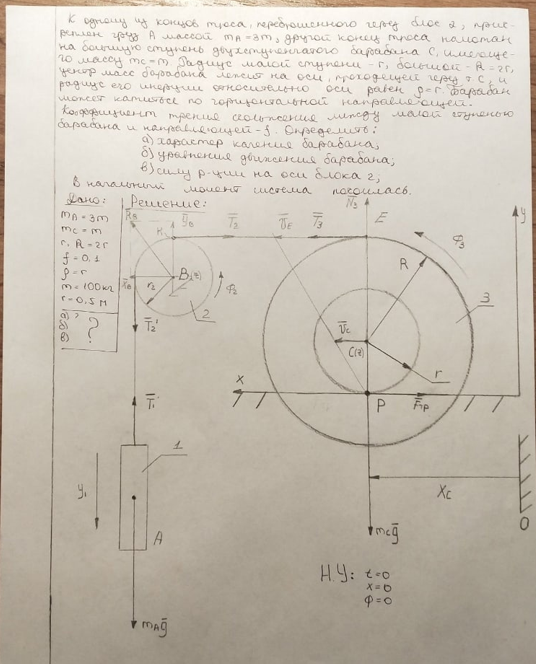 К одному из концов троса, переброшенного через блок 2, прик-
реплен груз А массой mA=3m, другой конец троса намотан
на большую ступень двухступенчатого барабана С, имеюще-
го массу mc=m. Радиус малой ступени - r, большой - R=2r,
центр масс барабана лежит на оси, проходящей через т. С, и
радиус его инерции относительно оси равен ρ=r. Барабан
может катиться по горизонтальной направляющей.
Коэффициент трения скольжения между малой ступенью
барабана и направляющей - f. Определить:
а) характер качения барабана;
б) уравнения движения барабана;
в) силу р-ции на оси блока 2;
В начальный момент система покоилась.
Дано:
mA=3m
mc=m
r, R=2r
f=0,1
ρ=r
m=100кг
r=0,5м
а)
б) ?
в)
Решение:
RB
YB
K
T2
UE
T3
N3
E
y
φ3
XB
B(z)
r2
φ2
2
T2'
R
3
Uc
C(z)
r
x
P
Fтр
T1
1
y1
A
Xc
O
mcg
mAg
Н.У: t=0
x=0
φ=0